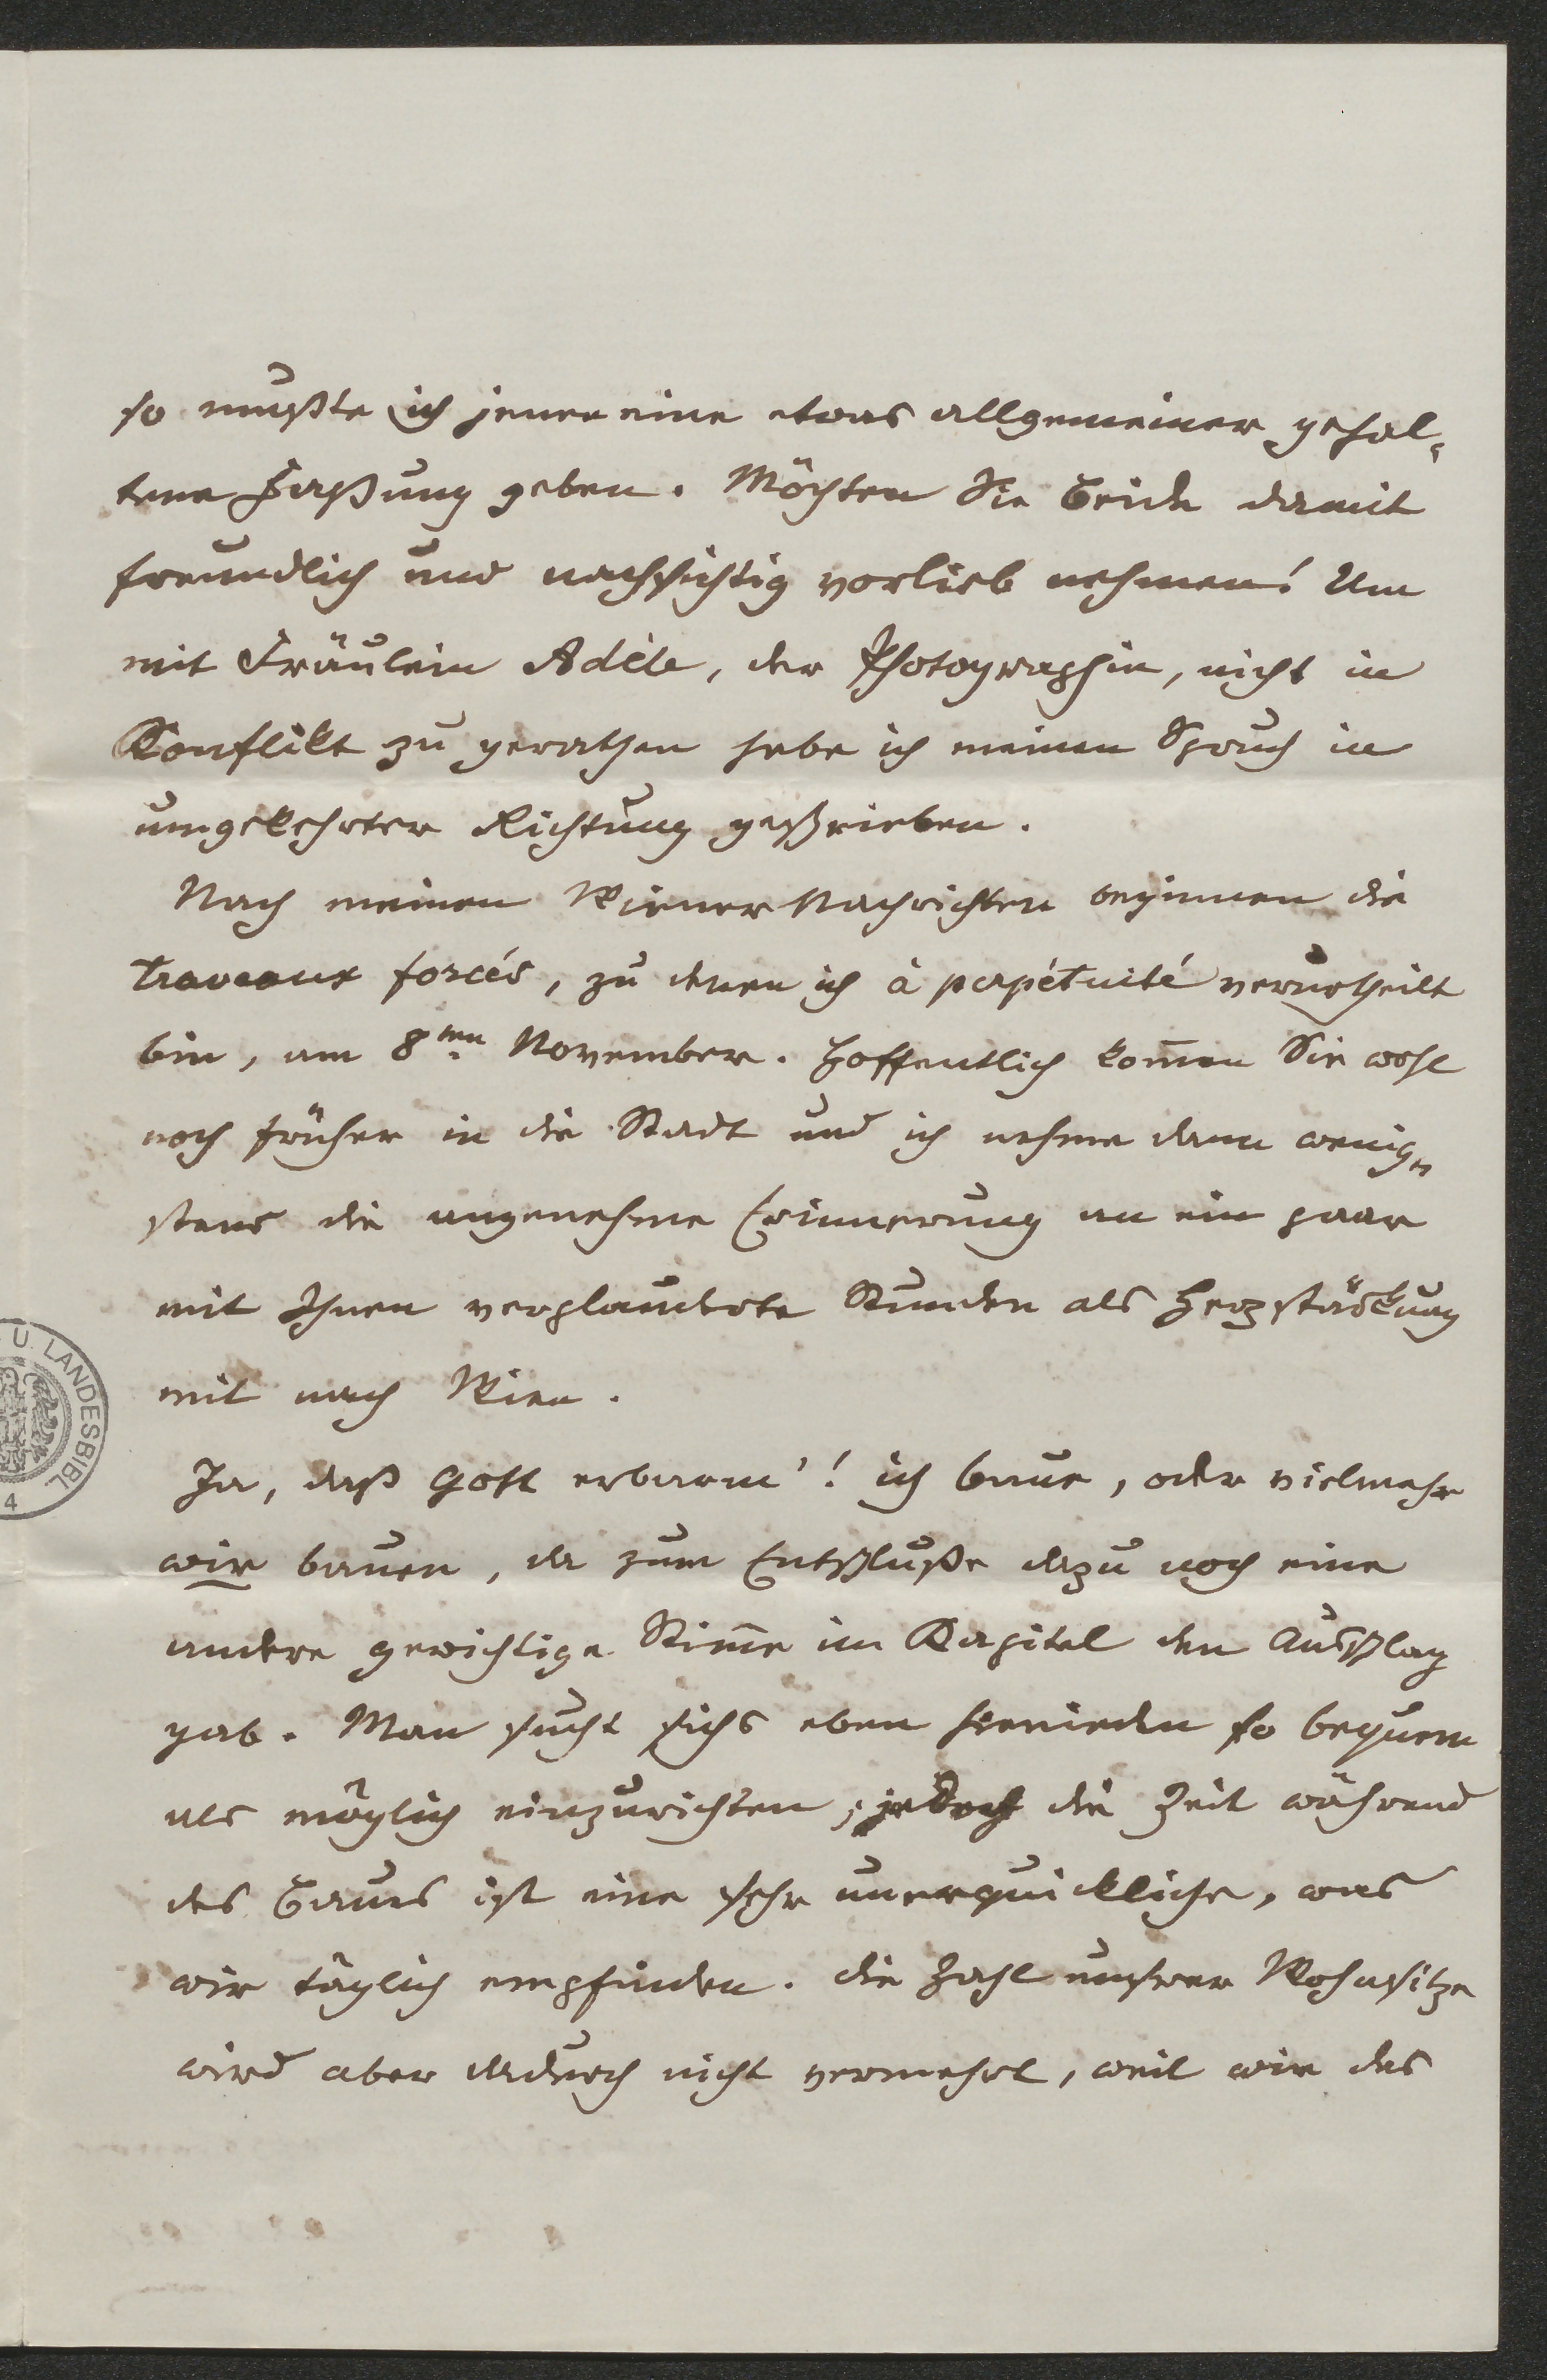 so mußte ich jener eine etwas allgemeiner gehal-
tene Faßung geben. Möchten Sie Beide damit
freundlich und nachsichtig vorlieb nehmen! Um
mit Fräulein Adèle, der Photographin, nicht in
Konflikt zu gerathen habe ich meinen Spruch in
umgekehrter Richtung geschrieben.
Nach meinen Wiener Nachrichten beginnen die
travaux forcés, zu denen ich à perpétuité verurtheilt
bin, am 8ten November. Hoffentlich kom̄en Sie wohl
noch früher in die Stadt und ich nehme dann wenig-
stens die angenehme Erinnerung an ein paar
mit Ihnen verplauderte Stunden als Herzstärkung
mit nach Wien.
Ja, daß Gott erbarm'! ich baue, oder vielmehr
wir bauen, da zum Entschluße dazu noch eine
andere gewichtige Stim̄e im Kapitel den Ausschlag
gab. Man sucht sichs eben hienieden so bequem
als möglich einzurichten; jedoch die Zeit während
des Baues ist eine sehr unerquickliche, was
wir täglich empfinden. Die Zahl unserer Wohnsitze
wird aber dadurch nicht vermehrt, weil wir das
U. LANDESBIBL
4